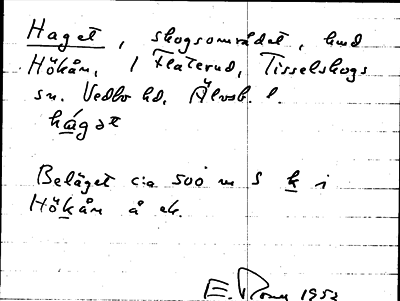 Haget, skogsområdet, hmd
Hökån, 1 Flaterud, Tisselskogs
sn. Vedbo hd, Älvsb. l.
hágət
Beläget c:a 500 m S k i
Hökån å ek.
E. 1952